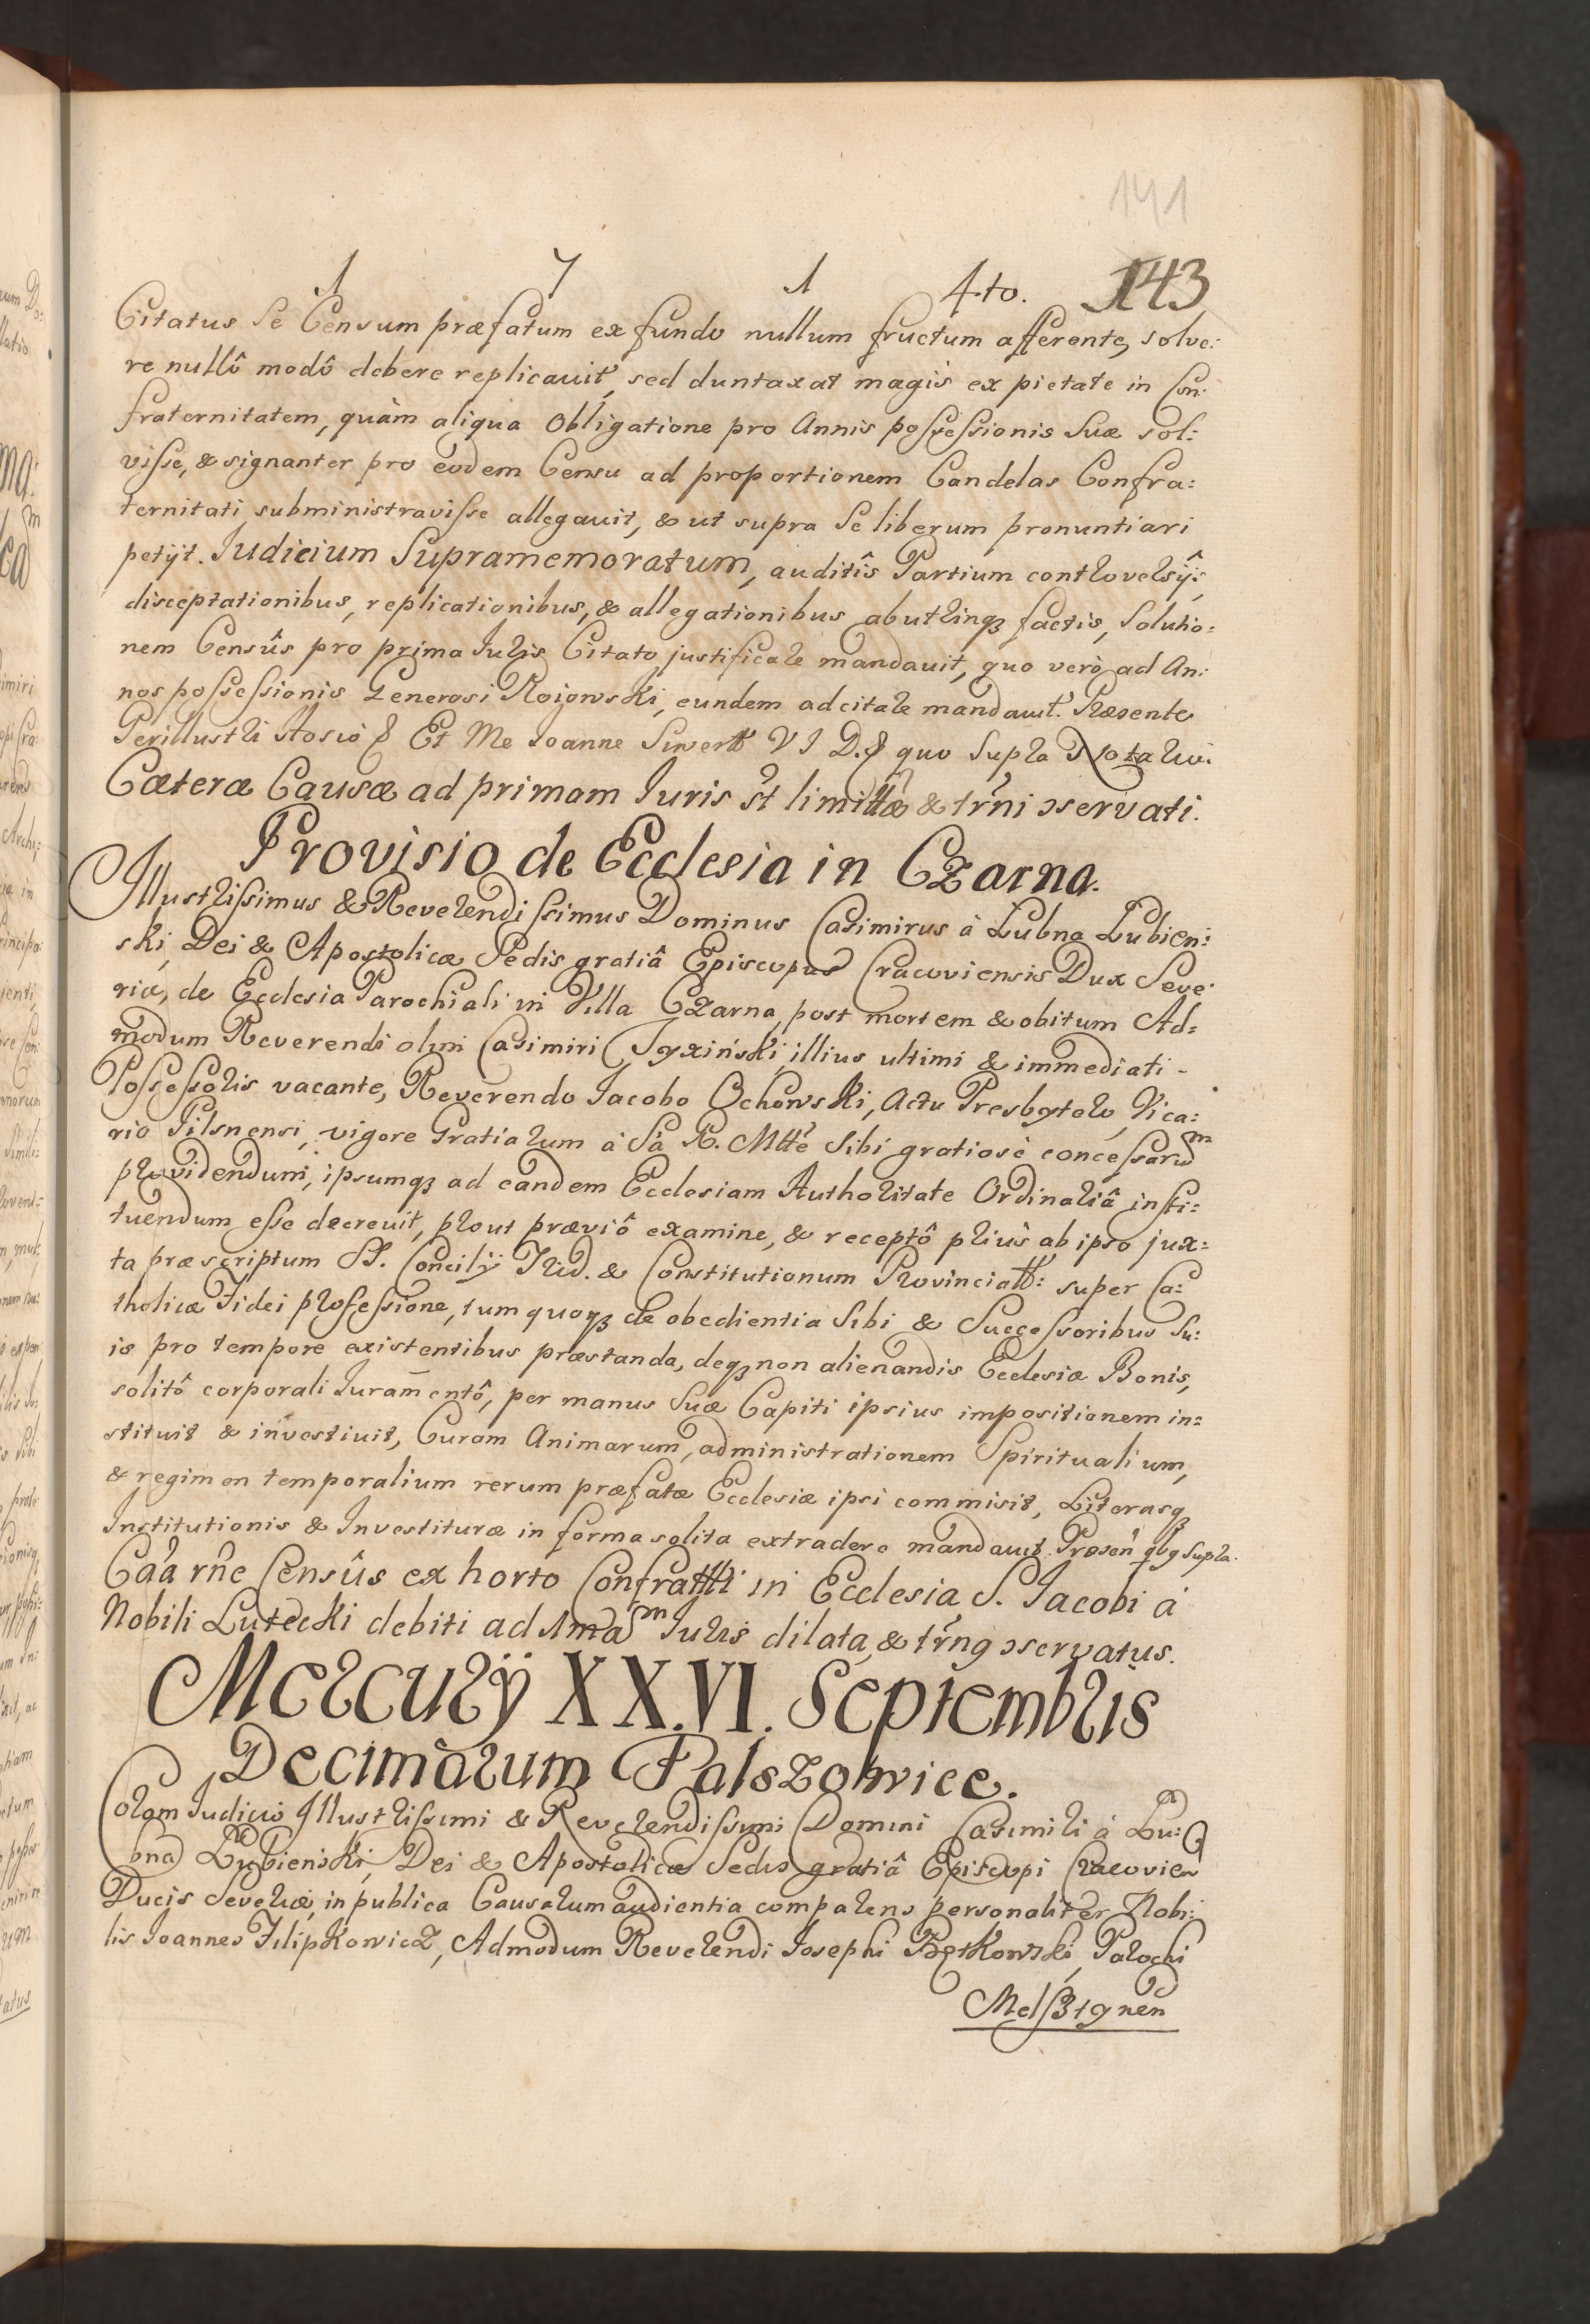 141
1 7 1 4to. 143
Citatus Se Censum præfatum ex fundo nullum fructum afferente, solve:
re nullô modô debere replicavit, sed duntaxat magis ex pietate in Con:
fraternitatem, quàm aliqua Obligatione pro Annis possessionis Suæ sol:
visse, & signanter pro eodem Censu ad proportionem Candelas Confra:
ternitati subministravisse allegavit, & ut supra Se liberum pronuntiari
petijt. Iudicium Supramemoratum, auditîs Partium controversijs,
disceptationibus, replicationibus, & allegationibus ab utrinq3 factis, Solutio:
nem Censûs pro prima Iuris Citato justificare mandavit, quo verò ad An:
nos possessionis Generosi Roiowski, eundem adcitare mandavit. Præsente
Perillustri Hosio & Et Me Ioanne Siwert V I D. & quo Supra Notario.
Cæteræ Causæ ad primam Iuris st limittæ & trni servati.
Provisio de Ecclesia in Czarna.
Illustrissimus & Reverendissimus Dominus Casimirus à Łubna Łubien:
ski, Dei & Apostolicæ Sedis gratiâ Episcopus Cracoviensis Dux Seve:
riæ, de Ecclesia Parochiali in Villa Czarna, post mortem & obitum Ad:
modum Reverendi olim Casimiri Jgxiński, illius ultimi & immediati -
Possessoris vacante, Reverendo Iacobo Ochowski, Actu Presbytero, Vica:
rio Pilsnensi, vigore Gratiarum à Sa R. Mtte Sibi gratiosè concessarum
providendum, ipsumq3 ad eandem Ecclesiam Authoritate Ordinariâ insti:
tuendum esse decrevit, prout præviô examine, & receptô priùs ab ipso jux:
ta præscriptum SS. Concilij Trid. & Constitutionum Provincialib: super Ca:
tholicæ Fidei professione, tum quoq3 de obedientia Sibi & Successoribus Su:
is pro tempore existentibus præstanda, deq3 non alienandis Ecclesiæ Bonis,
solitô corporali Iuramentô, per manus Suæ Capiti ipsius impositionem in:
stituit & investivit, Curam Animarum, administrationem Spiritualium,
& regimen temporalium rerum præfatæ Ecclesiæ ipsi commisit, Literasq3
Institutionis & Investituræ in forma solita extradere mandavit. Præsen qbg supra.
Caa rne Censûs ex horto Confratti in Ecclesia S. Iacobi à
Nobili Lutecki debiti ad 1mam Iuris dilata, & trng servatus.
Mercurÿ XX.VI. Septembris
Decimarum Palszowice.
Coram Iudicio Illustrissimi & Reverendissimi Domini Casimiri à Łu:
bna Łubieński, Dei & Apostolicæ Sedis gratiâ Episcopi Cracovien
Ducis Severiæ, in publica Causarum audientia comparens personaliter Nobi:
lis Ioannes Filipkowicz, Admodum Reverendi Iosephi Bętkowski, Parochi
Melsztynen